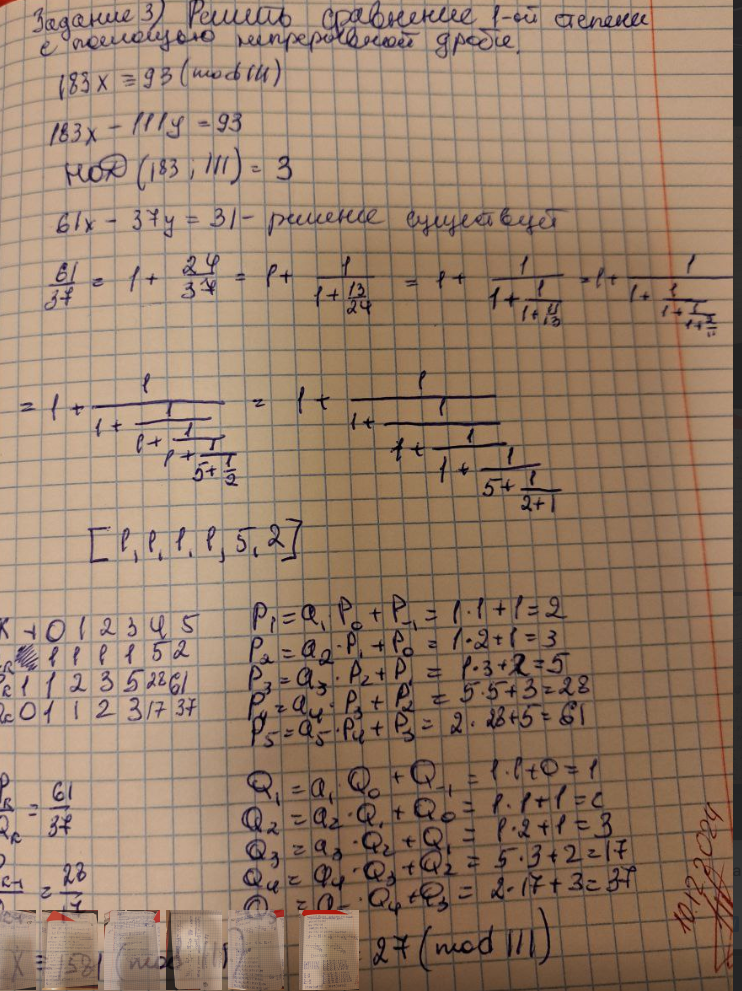 Задание 3) Решить сравнение 1-ой степени
с помощью непрерывной дроби.
183x ≡ 93 (mod 111)
183x - 111y = 93
НОД (183, 111) = 3
61x - 37y = 31 - решение существует
61/37 = 1 + 24/37 = 1 + 1/(1 + 13/24) = 1 + 1/(1 + 1/(1 + 11/13)) = 1 + 1/(1 + 1/(1 + 1/(1 + 2/11)))
= 1 + 1/(1 + 1/(1 + 1/(1 + 1/(5 + 1/2)))) = 1 + 1/(1 + 1/(1 + 1/(1 + 1/(5 + 1/(2+1)))))
[1, 1, 1, 1, 5, 2]
К -1 0 1 2 3 4 5
1 1 1 1 5 2
1 1 2 3 5 28 61
0 1 1 2 3 17 37
P₁ = a₁ P₀ + P₋₁ = 1·1+1 = 2
P₂ = a₂·P₁ + P₀ = 1·2+1 = 3
P₃ = a₃·P₂ + P₁ = 1·3+2 = 5
P₄ = a₄·P₃ + P₂ = 5·5+3 = 28
P₅ = a₅·P₄ + P₃ = 2·28+5 = 61
= 61/37
= 28/17
Q₁ = a₁·Q₀ + Q₋₁ = 1·1+0 = 1
Q₂ = a₂·Q₁ + Q₀ = 1·1+1 = 2
Q₃ = a₃·Q₂ + Q₁ = 1·2+1 = 3
Q₄ = a₄·Q₃ + Q₂ = 5·3+2 = 17
·Q₄ + Q₃ = 2·17+3 = 37
x ≡ 1581 (mod 111)
= 27 (mod 111)
10.12.2024